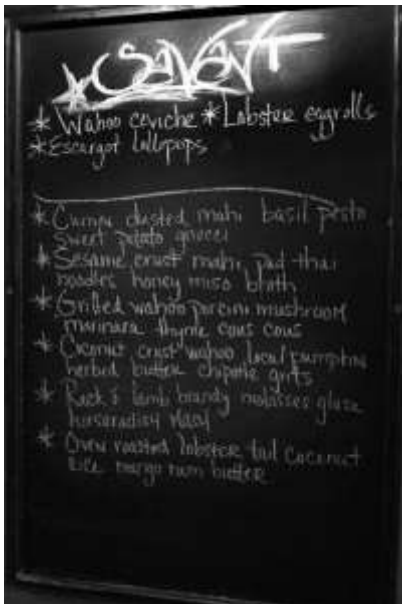 * SaVanT
* Wahoo ceviche * Lobster eggrolls
* Escargot lollipops
* Cumin dusted mahi basil pesto
sweet potato gnocci
* Sesame crust mahi pad-thai
noodles honey miso broth
* Grilled wahoo porcini mushroom
marinara thyme cous cous
* Coconut crust wahoo local pumpkin
herbed butter chipotle grits
* Rack of lamb brandy molasses glaze
horseradish mash
* Oven roasted lobster tail coconut
rice mango rum butter